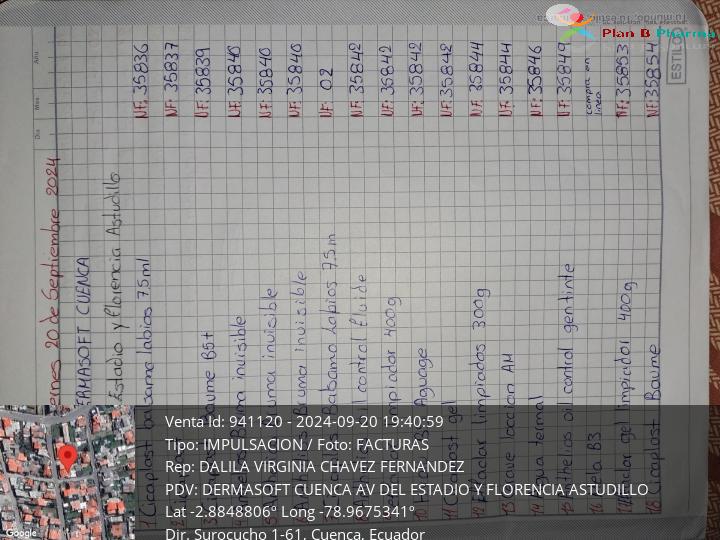 Plan B Pharma
ESTILO
Año
Mes
Dia
20 de Septiembre 2024
CUENCA
Estadio y Florencia Astudillo
1 Cicaplast balsamo labios 7.5ml NF: 35836
NF: 35837
Baume B5+ NF: 35839
invisible NF: 35840
Bruma invisible NF: 35840
Bruma invisible NF: 35840
Labios 7.5m NF: 02
oil control fluide NF: 35842
limpiador 400g NF: 35842
Aguage NF: 35842
gel NF: 35842
limpiador 300g NF: 35844
AH NF: 35844
termal NF: 35846
oil control gentinte NF: 35849
B3 compra en linea
gel limpiador 400g NF: 35853
18 Cicaplast Baume NF: 35854
Google
Venta Id: 941120 - 2024-09-20 19:40:59
Tipo: IMPULSACION / Foto: FACTURAS
Rep: DALILA VIRGINIA CHAVEZ FERNANDEZ
PDV: DERMASOFT CUENCA AV DEL ESTADIO Y FLORENCIA ASTUDILLO
Lat -2.8848806° Long -78.9675341°
Dir. Surocucho 1-61, Cuenca, Ecuador